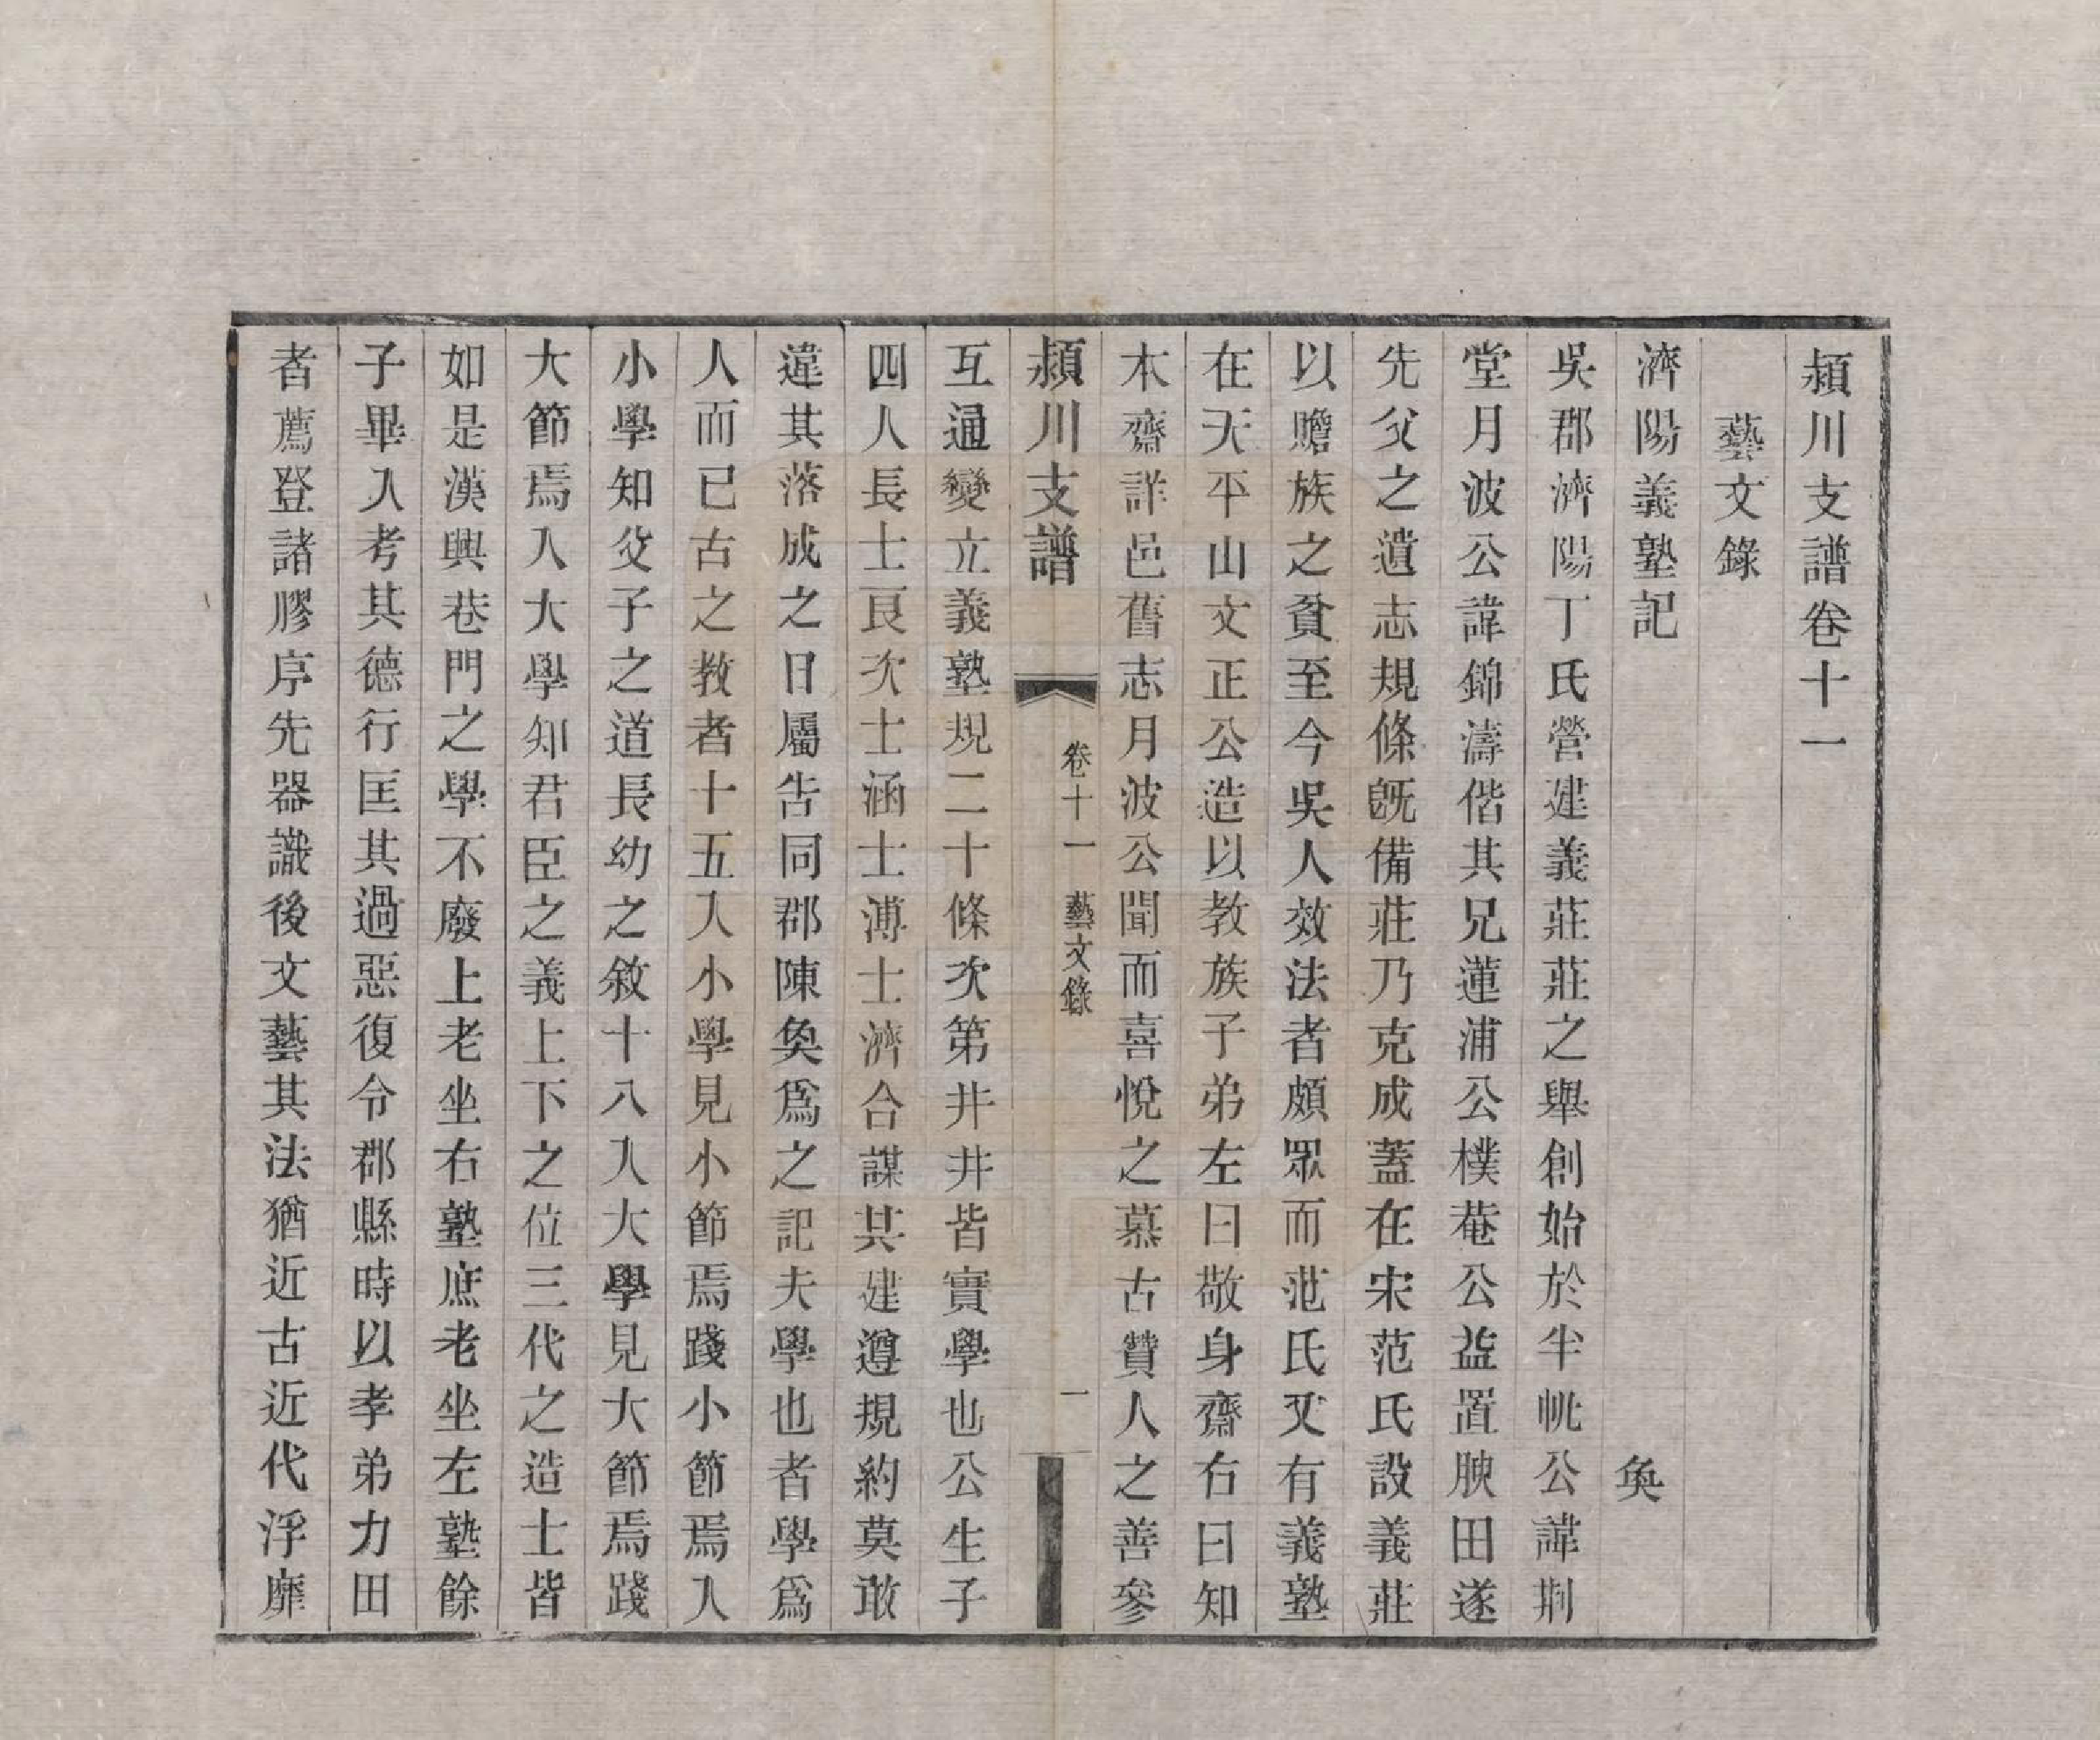 潁川支譜卷十一
藝文錄
濟陽義塾記　奐
吳郡濟陽丁氏營建義莊莊之舉創始於半帆公諱荆
堂月波公諱錦濤偕其兄蓮浦公樸菴公益置腴田遂
先父之遺志規條旣備莊乃克成蓋在宋范氏設義莊
以贍族之貧至今吳人效法者頗眾而范氏又有義塾
在天平山文正公造以教族子弟左曰敬身齋右曰知
本齋詳邑舊志月波公聞而喜悅之慕古贊人之善參
潁川支譜　卷十一　藝文錄　一
互通變立義塾規二十條次第井井皆實學也公生子
四人長士良次士涵士溥士濟合謀其建遵規約莫敢
違其落成之日屬吿同郡陳奐爲之記夫學也者學爲
人而已古之教者十五入小學見小節焉踐小節焉入
小學知父子之道長幼之敘十八入大學見大節焉踐
大節焉入大學知君臣之義上下之位三代之造士皆
如是漢興巷門之學不廢上老坐右塾庶老坐左塾餘
子畢入考其德行匡其過惡復令郡縣時以孝弟力田
者薦登諸膠序先器識後文藝其法猶近古近代浮靡